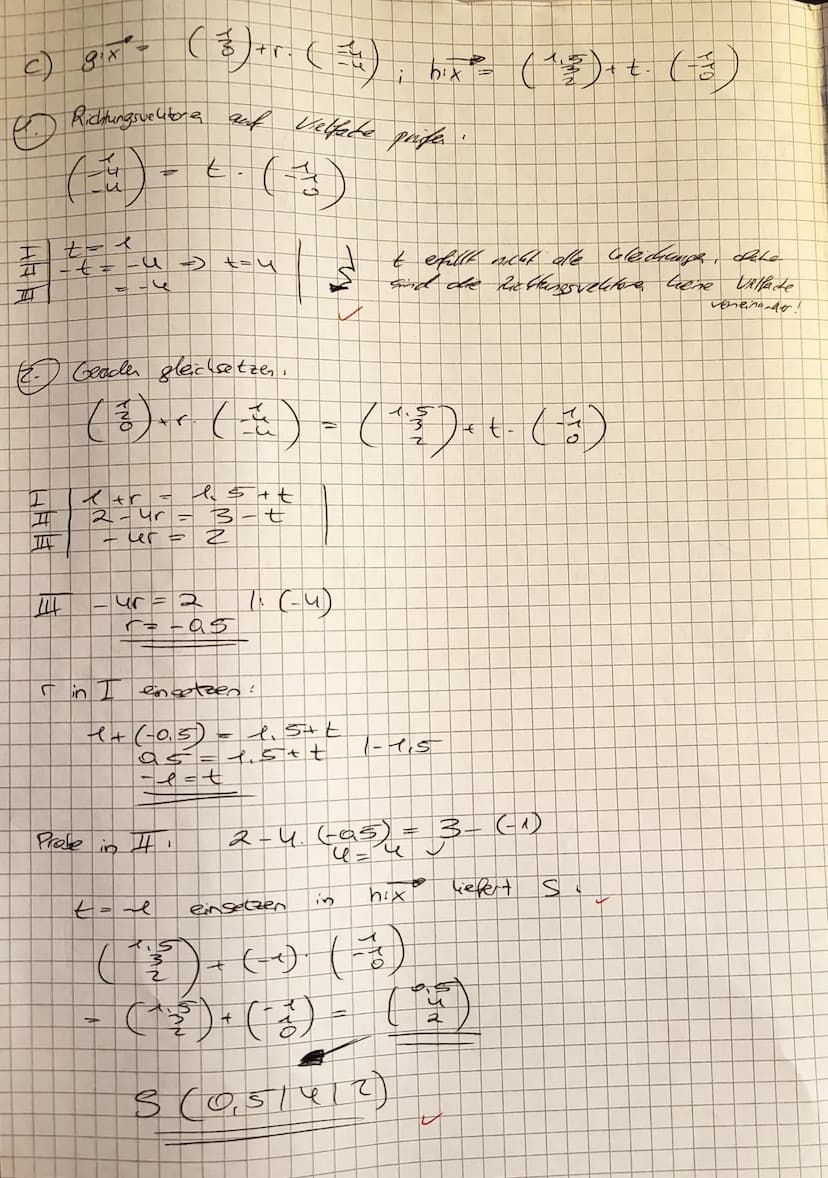 c) g: x⃗ = (1 2 0) + r · (1 -4 -4) ; h: x⃗ = (1,5 3 2) + t · (1 -1 0)
1. Richtungsvektoren auf Vielfache prüfen.
(1 -4 -4) = t · (1 -1 0)
I | t = 1
II | -t = -4 => t = 4 | ↯ t erfüllt nicht alle Gleichungen, daher
III | = -4 | sind die Richtungsvektoren keine Vielfache
voneinander!
2. Geraden gleichsetzen.
(1 2 0) + r · (1 -4 -4) = (1,5 3 2) + t · (1 -1 0)
I | 1 + r = 1,5 + t
II | 2 - 4r = 3 - t
III | -4r = 2
III -4r = 2 |: (-4)
r = -0,5
r in I einsetzen:
1 + (-0,5) = 1,5 + t
0,5 = 1,5 + t |-1,5
-1 = t
Probe in II: 2 - 4 · (-0,5) = 3 - (-1)
4 = 4 ✓
t = -1 einsetzen in h: x⃗ liefert S.
(1,5 3 2) + (-1) · (1 -1 0)
= (1,5 3 2) + (-1 1 0) = (0,5 4 2)
S (0,5 | 4 | 2)